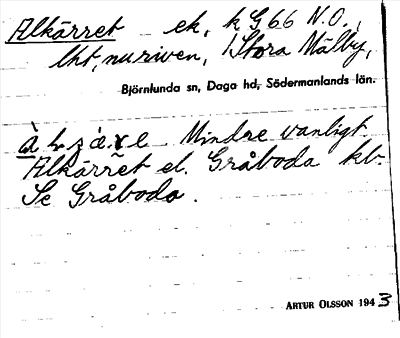 Alkärret ek, k G66 N.O.,
lht, nu riven, Stora Mälby,
Björnlunda sn, Daga hd, Södermanlands län.
Mindre vanligt.
Alkärret el. Gråboda kb.
Se Gråboda.
ARTUR OLSSON 1943